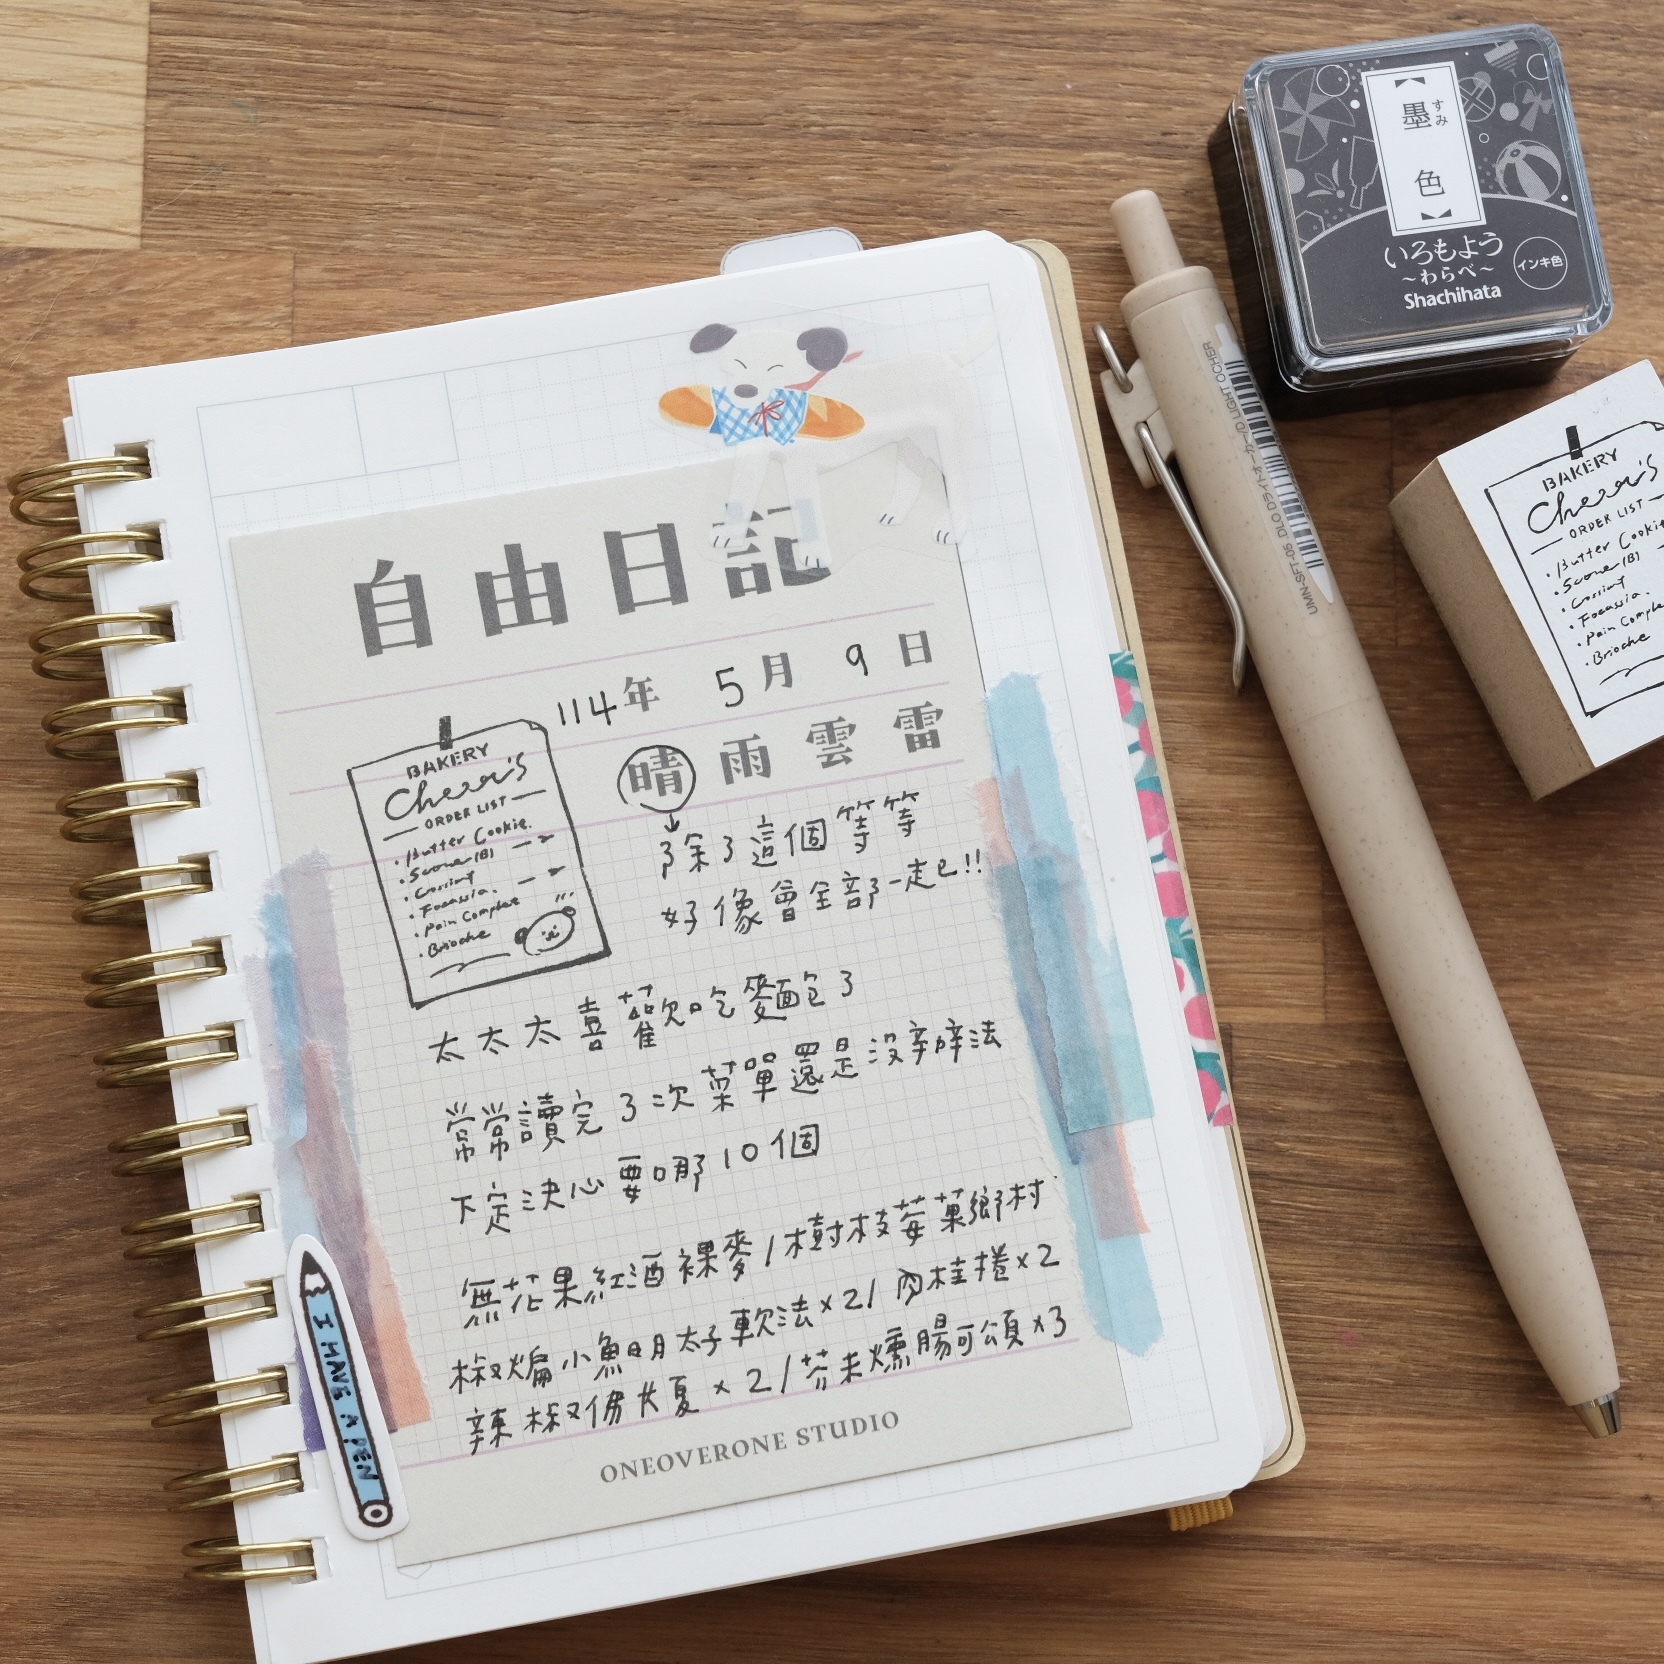 自由日記
114年 5月 9日
晴 雨 雲 雷
除了這個等等
好像會全部一走已!!
BAKERY
Cheer's
ORDER LIST
・Butter Cookie.
・Scone(B)
・Crossiant
・Focassia.
・Pain Complet
・Brioche
太太太喜歡吃麵包了
常常讀完3次菜單還是沒辦法
下定決心要哪10個
無花果紅酒裸麥/樹枝莓菓鄉村
椒煸小魚明太子軟法x2/肉桂捲x2
辣椒佛卡夏 x2/芥末燻腸可頌x3
ONEOVERONE STUDIO
I HAVE A PEN
【墨色】
すみ
いろもよう
～わらべ～
インキ色
Shachihata
UMN-SFT-05 DLO Dライトオーカー/D.LIGHT OCHER
BAKERY
Cheer's
ORDER LIST
・Butter Cookie
・Scone(B)
・Crossiant
・Focassia.
・Pain Comple
・Brioche